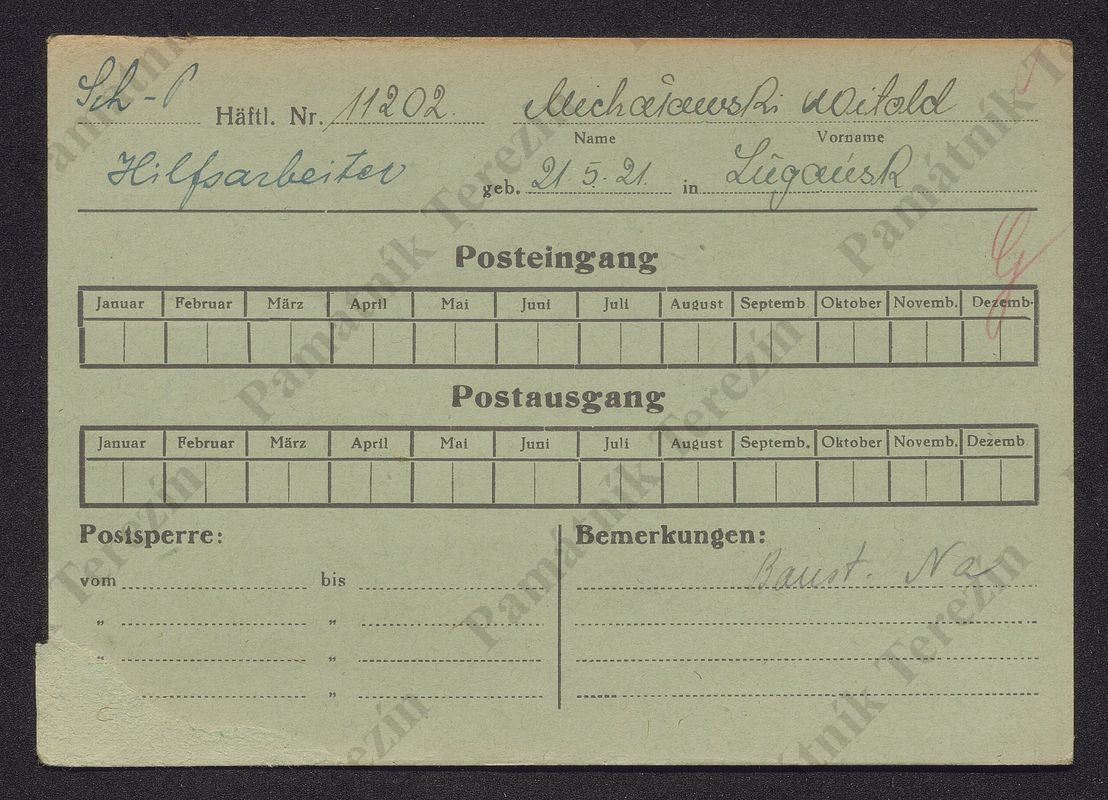 Sch-P Häftl. Nr. 11202. Michałowski Witold
Name Vorname
Hilfsarbeiter geb. 21.5.21. in Lúgańsk
Posteingang
Januar Februar März April Mai Juni Juli August Septemb. Oktober Novemb. Dezemb.
Postausgang
Januar Februar März April Mai Juni Juli August Septemb. Oktober Novemb. Dezemb.
Postsperre: Bemerkungen:
vom bis Baust. Na
" "
" "
"
Památník Terezín